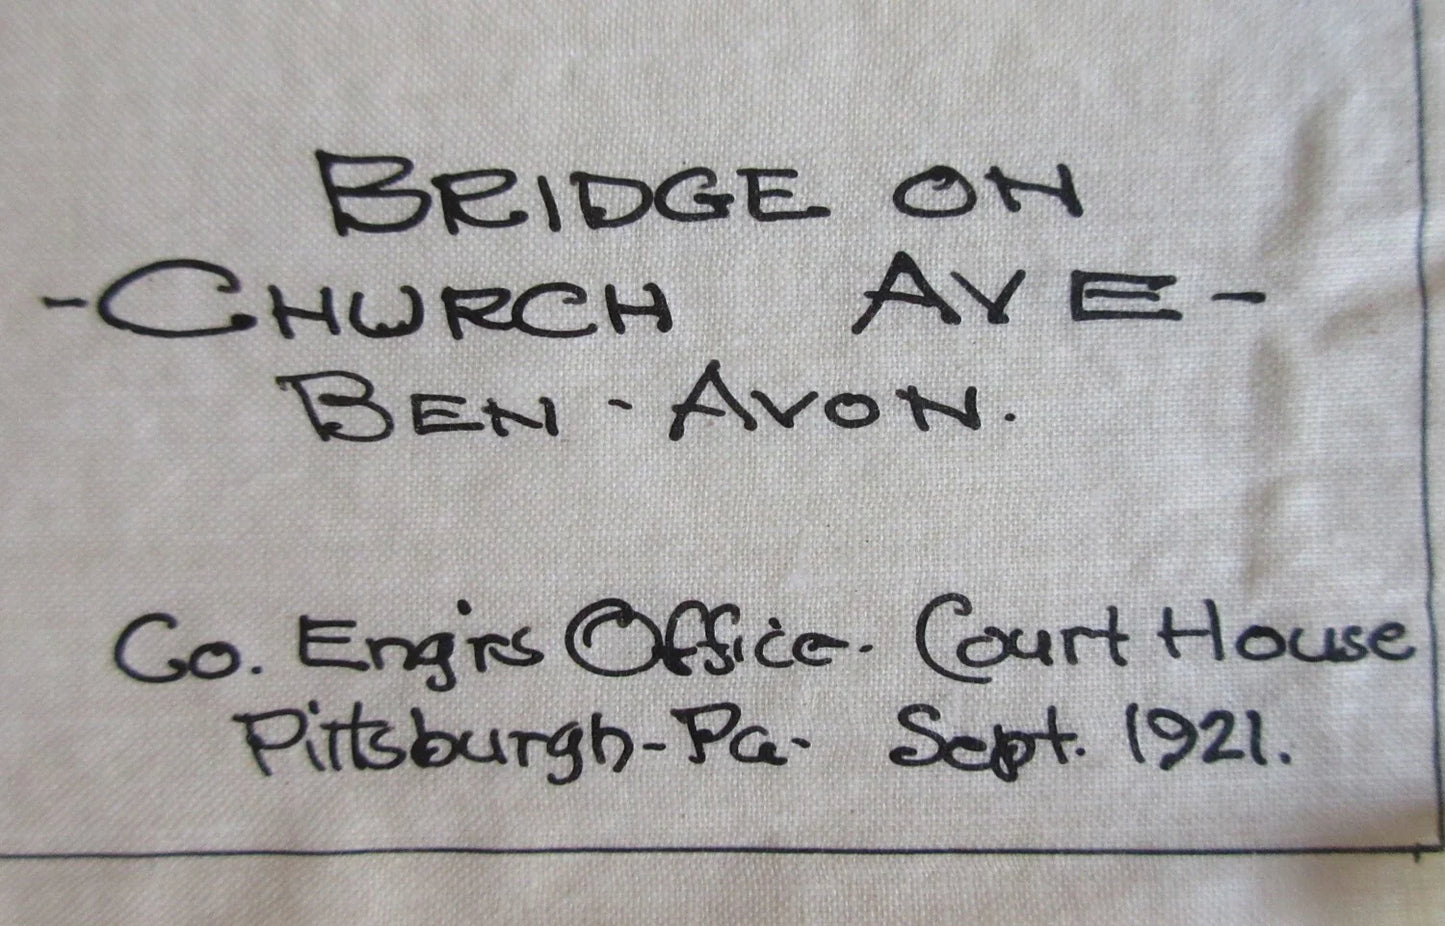 BRIDGE ON
-CHURCH AVE-
BEN-AVON.
Co. Engrs Office. Court House
Pittsburgh-Pa- Sept. 1921.